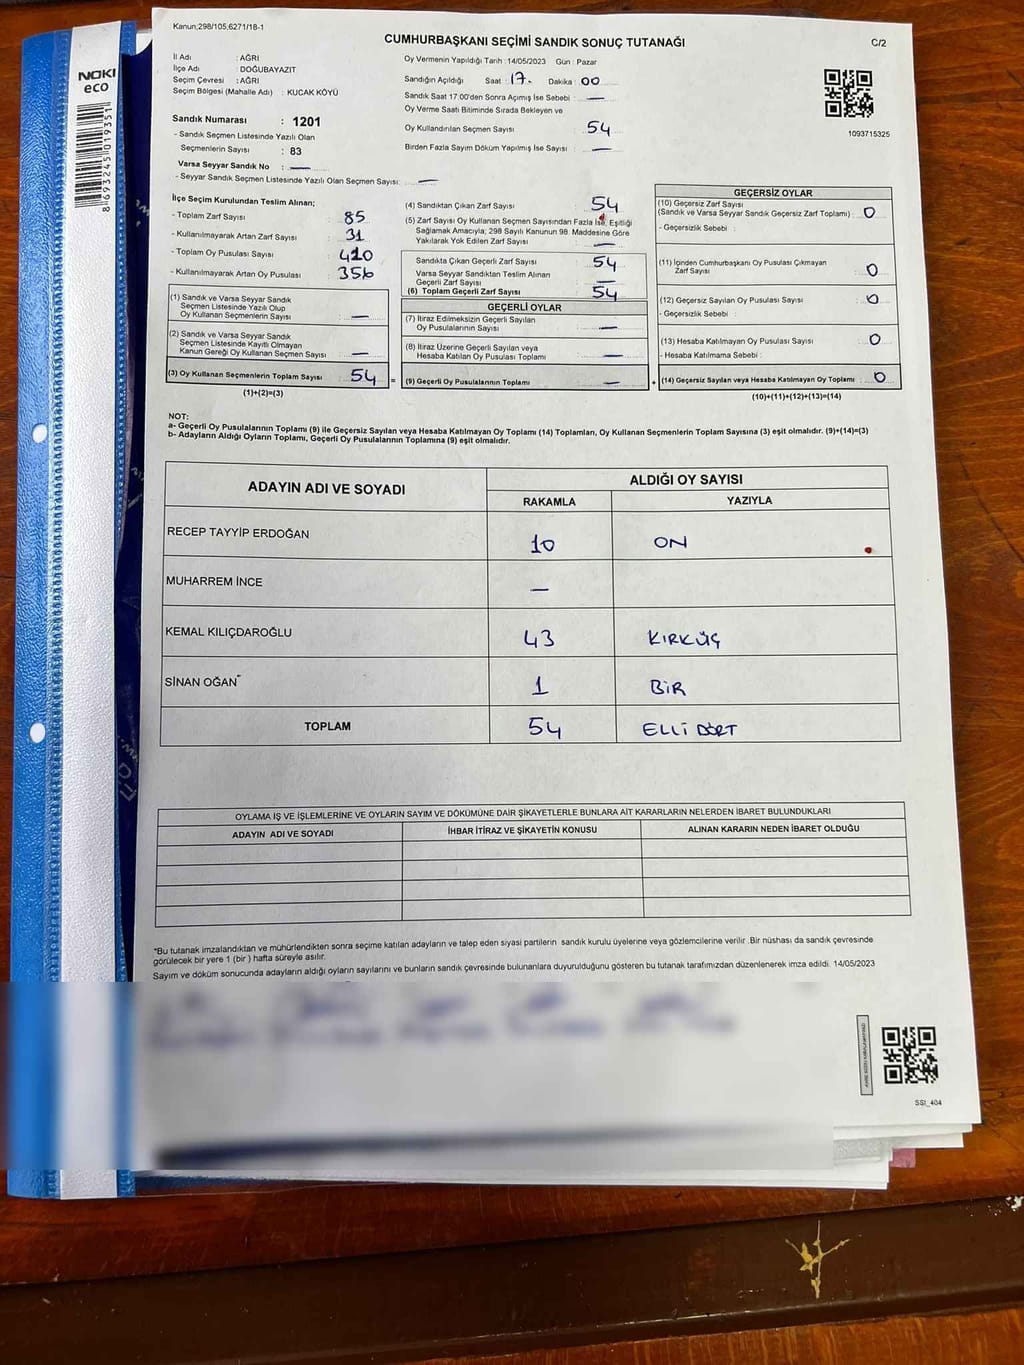 Kanun;298/105;6271/18-1
CUMHURBAŞKANI SEÇİMİ SANDIK SONUÇ TUTANAĞI
C/2
NOKI
eco
8693245019351
İl Adı : AĞRI
İlçe Adı : DOĞUBAYAZIT
Seçim Çevresi : AĞRI
Seçim Bölgesi (Mahalle Adı) : KUCAK KÖYÜ
Sandık Numarası : 1201
- Sandık Seçmen Listesinde Yazılı Olan
Seçmenlerin Sayısı : 83
Varsa Seyyar Sandık No : —
- Seyyar Sandık Seçmen Listesinde Yazılı Olan Seçmen Sayısı: —
Oy Vermenin Yapıldığı Tarih :14/05/2023 Gün : Pazar
Sandığın Açıldığı Saat : 17. Dakika : 00
Sandık Saat 17:00'den Sonra Açımış İse Sebebi : —
Oy Verme Saati Bitiminde Sırada Bekleyen ve
Oy Kullandırılan Seçmen Sayısı : 54
Birden Fazla Sayım Döküm Yapılmış İse Sayısı : —
1093715325
İlçe Seçim Kurulundan Teslim Alınan;
- Toplam Zarf Sayısı : 85
- Kullanılmayarak Artan Zarf Sayısı : 31
- Toplam Oy Pusulası Sayısı : 410
- Kullanılmayarak Artan Oy Pusulası : 356
(1) Sandık ve Varsa Seyyar Sandık
Seçmen Listesinde Yazılı Olup
Oy Kullanan Seçmenlerin Sayısı : —
(2) Sandık ve Varsa Seyyar Sandık
Seçmen Listesinde Kayıtlı Olmayan
Kanun Gereği Oy Kullanan Seçmen Sayısı : —
(3) Oy Kullanan Seçmenlerin Toplam Sayısı : 54 =
(1)+(2)=(3)
(4) Sandıktan Çıkan Zarf Sayısı : 54
(5) Zarf Sayısı Oy Kullanan Seçmen Sayısından Fazla İse, Eşitliği
Sağlamak Amacıyla; 298 Sayılı Kanunun 98. Maddesine Göre
Yakılarak Yok Edilen Zarf Sayısı : —
Sandıkta Çıkan Geçerli Zarf Sayısı : 54
Varsa Seyyar Sandıktan Teslim Alınan
Geçerli Zarf Sayısı : —
(6) Toplam Geçerli Zarf Sayısı : 54
GEÇERLİ OYLAR
(7) İtiraz Edilmeksizin Geçerli Sayılan
Oy Pusulalarının Sayısı : —
(8) İtiraz Üzerine Geçerli Sayılan veya
Hesaba Katılan Oy Pusulası Toplamı : —
(9) Geçerli Oy Pusulalarının Toplamı : — +
GEÇERSİZ OYLAR
(10) Geçersiz Zarf Sayısı
(Sandık ve Varsa Seyyar Sandık Geçersiz Zarf Toplamı) : 0
- Geçersizlik Sebebi :
(11) İçinden Cumhurbaşkanı Oy Pusulası Çıkmayan
Zarf Sayısı : 0
(12) Geçersiz Sayılan Oy Pusulası Sayısı : 0
- Geçersizlik Sebebi :
(13) Hesaba Katılmayan Oy Pusulası Sayısı : 0
- Hesaba Katılmama Sebebi :
(14) Geçersiz Sayılan veya Hesaba Katılmayan Oy Toplamı : 0
(10)+(11)+(12)+(13)=(14)
NOT:
a- Geçerli Oy Pusulalarının Toplamı (9) ile Geçersiz Sayılan veya Hesaba Katılmayan Oy Toplamı (14) Toplamları, Oy Kullanan Seçmenlerin Toplam Sayısına (3) eşit olmalıdır. (9)+(14)=(3)
b- Adayların Aldığı Oyların Toplamı, Geçerli Oy Pusulalarının Toplamına (9) eşit olmalıdır.
ADAYIN ADI VE SOYADI ALDIĞI OY SAYISI
RAKAMLA YAZIYLA
RECEP TAYYİP ERDOĞAN 10 ON
MUHARREM İNCE —
KEMAL KILIÇDAROĞLU 43 KIRKÜÇ
SİNAN OĞAN 1 BİR
TOPLAM 54 ELLİ DÖRT
OYLAMA İŞ VE İŞLEMLERİNE VE OYLARIN SAYIM VE DÖKÜMÜNE DAİR ŞİKAYETLERLE BUNLARA AİT KARARLARIN NELERDEN İBARET BULUNDUKLARI
ADAYIN ADI VE SOYADI İHBAR İTİRAZ VE ŞİKAYETİN KONUSU ALINAN KARARIN NEDEN İBARET OLDUĞU
*Bu tutanak imzalandıktan ve mühürlendikten sonra seçime katılan adayların ve talep eden siyasi partilerin sandık kurulu üyelerine veya gözlemcilerine verilir .Bir nüshası da sandık çevresinde
görülecek bir yere 1 (bir ) hafta süreyle asılır.
Sayım ve döküm sonucunda adayların aldığı oyların sayılarını ve bunların sandık çevresinde bulunanlara duyurulduğunu gösteren bu tutanak tarafımızdan düzenlenerek imza edildi. 14/05/2023
SSI_404